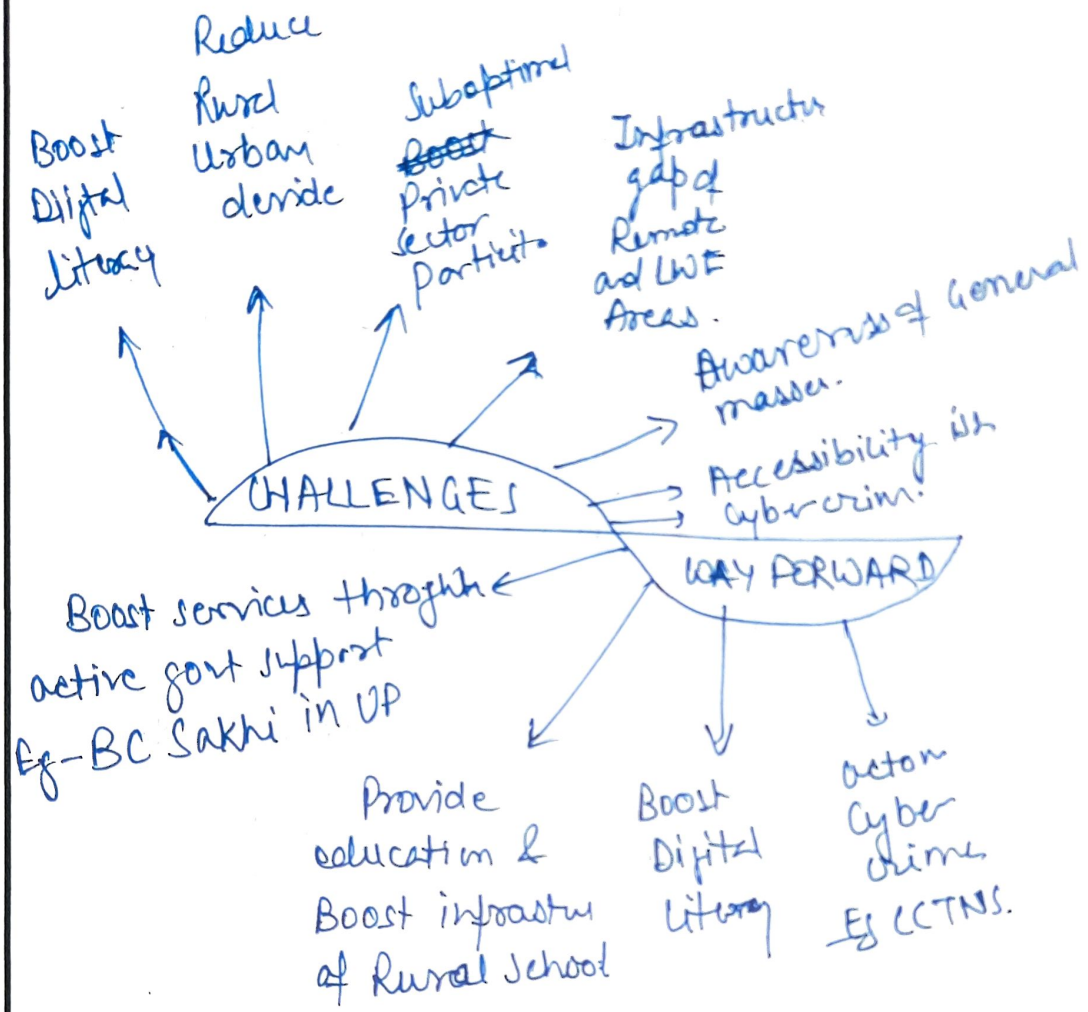 Boost
Diijtal
literacy
Reduce
Rural
Urban
devide
Suboptimal
Boost
Private
sector
Infrastructu
gap of
Remote
and LWE
Areas.
Awareness of General
masses.
Accessibility
Cybercrim.
CHALLENGES
WAY FORWARD
Boost services throghh
active govt support
Eg-BC Sakhi in UP
Provide
education &
Boost infrastru
of Rural School
Boost
Digital
literacy
acton
Cyber
crimes
Eg CCTNS.